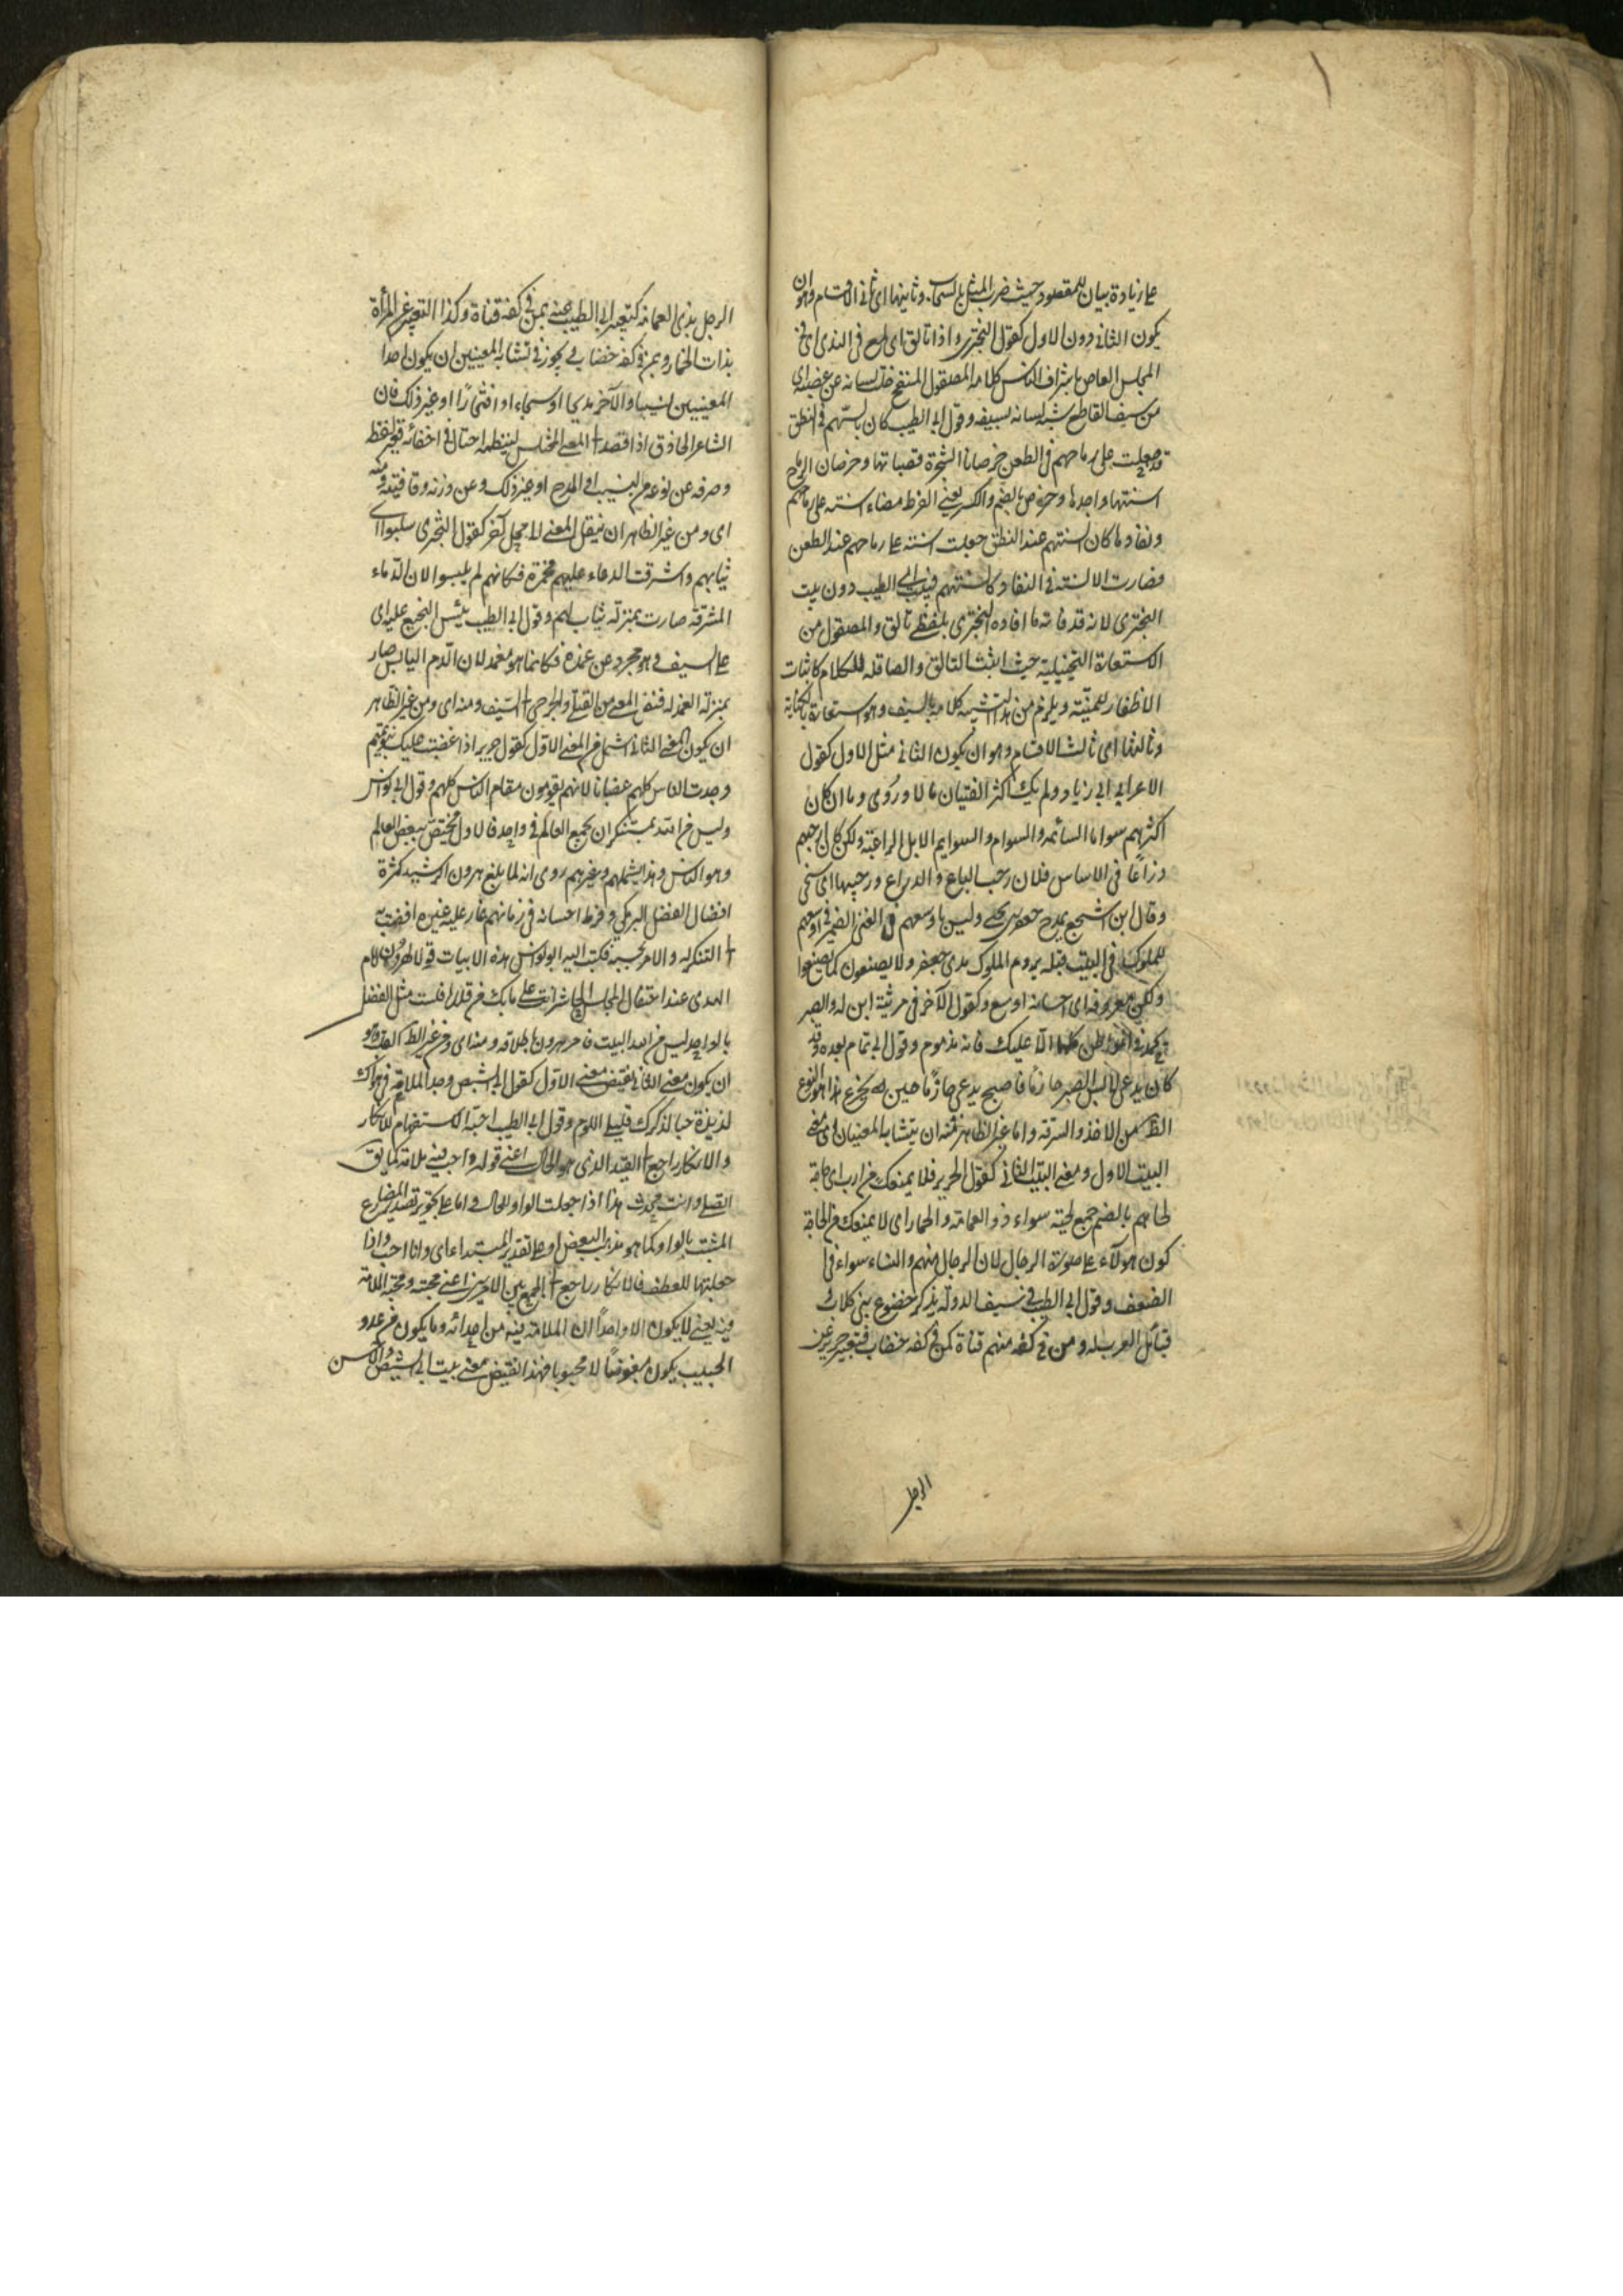 على زيادة بيان للمقصود حيث ضرب المثل بالسحاب وثانيها اى ثانى الاقسام وهو ان
يكون الثانى دون الاول كقول البحترى واذا تالق اى لمع فى الندى اى فى
المجلس الغاص باشراف الناس كلامه المصقول المنقح خلت لسانه من عضبه اى
من سيفه القاطع شبه لسانه بسيفه وقول ابى الطيب كان السنهم فى النطق
قد جعلت على رماحهم فى الطعن خرصانا الشجرة قصباتها وخرصان الرماح
اسنتها واحدها خرص بالضم والكسر يعنى لفرط مضاء اسنة على رماحهم
ونفاذها كان السنتهم عند النطق جعلت اسنة على رماحهم عند الطعن
فصارت الاسنة فى النفاذ كالسنتهم فبيت ابى الطيب دون بيت
البحترى لانه قد فاته ما افاده البحترى بلفظى تالق والمصقول من
الاستعارة التخييلية حيث اثبت التالق والصاقله للكلام كاثبات
الاظفار للمنية ويلزم من هذا تشبيه كلامه بالسيف وهو استعارة بالكناية
وثالثها اى ثالث الاقسام وهو ان يكون الثانى مثل الاول كقول
الاعرابى ابى زياد ولم يك اكثر الفتيان مالا وروى وما ان كان
اكثرهم سواما السائمه والسوام والسوايم الابل الراعية ولكن كان ارحبهم
ذراعا فى الاساس فلان رحب الباع والذراع ورحيبها اى سخى
وقال ابن اشجع يمدح جعفر بن يحيى وليس باوسعهم فى الغنى الضمير فى اوسعهم
للملوك فى البيت قبله يروم الملوك مدى جعفر ولا يصنعون كما يصنع
ولكن معروفه اى احسانه اوسع وكقول الآخر فى مرثية ابن له والصبر
يحمد فى المواطن كلها الا عليك فانه مذموم وقول ابى تمام بعده وقد
كان يدعى لابس الصبر حازما فاصبح يدعى حازما حين يجزع هذا هو النوع
الظ من الاخذ والسرقة واما غير الظاهر فمنه ان يتشابه المعنيان اى معنى
البيت الاول ومعنى البيت الثانى كقول الجرير فلا يمنعك من ارب اى حاجة
لحاهم بالضم جمع لحية سواء ذو العمامة والخمار اى لا يمنعك من الحاجة
كون هولاء على صورة الرجال لان الرجال منهم والنساء سواء فى
الضعف وقول ابى الطيب فى سيف الدولة يذكر خضوع بنى كلاب و
قبائل العرب له ومن فى كفه منهم قناة كمن فى كفه خضاب فتعبير جرير عن
الرجل
الرجل بذى العمامة كتعبير ابى الطيب عنه بمن فى كفه قناة وكذا التعبير عن المرأة
بذات الخمار وبمن فى كفه خضاب ويجوز فى تشابه المعنيين ان يكون احد
المعنيين نسيبا والآخر مديحا او هجاء او افتخارا او غير ذلك فان
الشاعر الحاذق اذا قصد الى المعنى المختلس لينظمه احتال فى اخفائه فغير لفظه
وصرفه عن نوعه من النسيب او المدح او غير ذلك وعن وزنه وقافيته ومنه
اى ومن غير الظاهر ان ينقل المعنى الى محل آخر كقول البحترى سلبوا اى
ثيابهم واشرقت الدماء عليهم محمرة فكانهم لم يسلبوا لان الدماء
المشرقة صارت بمنزلة ثياب لهم وقول ابى الطيب يبس النجيع عليه اى
على السيف وهو مجرد عن غمده فكانما هو مغمد لان الدم اليابس صار
بمنزلة الغمد له فنقل المعنى من القتلى والجرحى الى السيف ومنه اى ومن غير الظاهر
ان يكون المعنى الثانى اشمل من المعنى الاول كقول جرير اذا غضبت عليك بنو تميم
وجدت الناس كلهم غضبانا لانهم يقومون مقام الناس كلهم وقول ابى نواس
وليس من الله بمستنكر ان يجمع العالم فى واحد فالاول يختص ببعض العالم
وهو الناس وهذا يشملهم وغيرهم روى انه لما بلغ هرون الرشيد كثرة
افضال الفضل البرمكى وفرط احسانه فى زمانهم غار عليه غيرة افضت به
الى التنكر له والامر بحبسه فكتب اليه ابو نواس هذه الابيات قولا لهرون امام
الهدى عند احتفال المجلس الحاشد انت على ما بك من قدرة فلست مثل الفضل
بالواجد ليس من الله البيت فامر هرون باطلاقه ومنه اى ومن غير الظ القلب وهو
ان يكون معنى الثانى نقيض معنى الاول كقول ابى الشيص اجد الملامة فى هواك
لذيذة حبا لذكرك فليلمنى اللوم وقول ابى الطيب ااحبه الاستفهام للانكار
والانكار راجع الى القيد الذى هو الحال اعنى قوله واحب فيه ملامة كما يق
اتصلى وانت محدث هذا اذا جعلت الواو للحال واما على تجويز تصدير المضارع
المثبت بالواو كما هو مذهب البعض او على تقدير المبتدا اى وانا احب واذا
جعلتها للعطف فالانكار راجع الى الجمع بين الامرين اعنى محبته ومحبة الملامة
فيه يعنى لا يكون الا واحدا ان الملامة فيه من اعدائه وما يكون من عدو
الحبيب يكون مبغوضا لا محبوبا فهذا نقيض معنى بيت ابى الشيص والاحسن